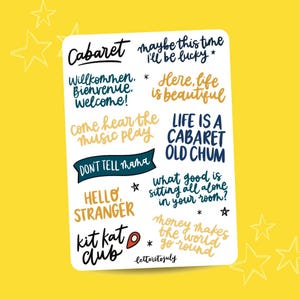 Cabaret
maybe this time
I'll be lucky
Willkommen,
Bienvenue,
Welcome!
Here, life
is beautiful
come hear the
music play
LIFE IS A
CABARET
OLD CHUM
DON'T TELL mama
what good is
sitting all alone
in your room?
HELLO,
STRANGER
money makes
the world
go round
kit kat
club
letteritojuly